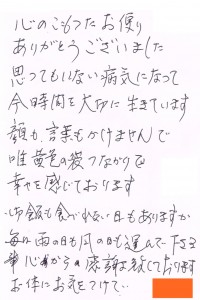 心のこもったお便り
ありがとうございました
思ってもいない病気になって
今時間を大切に生きています
顔も言葉もかけませんで
唯黄色の愛つながりで
幸せを感じております
御飯も食べれない日もありますが
毎日雨の日も風の日も運んで下さる
心から感謝致しております
お体にお気をつけて…